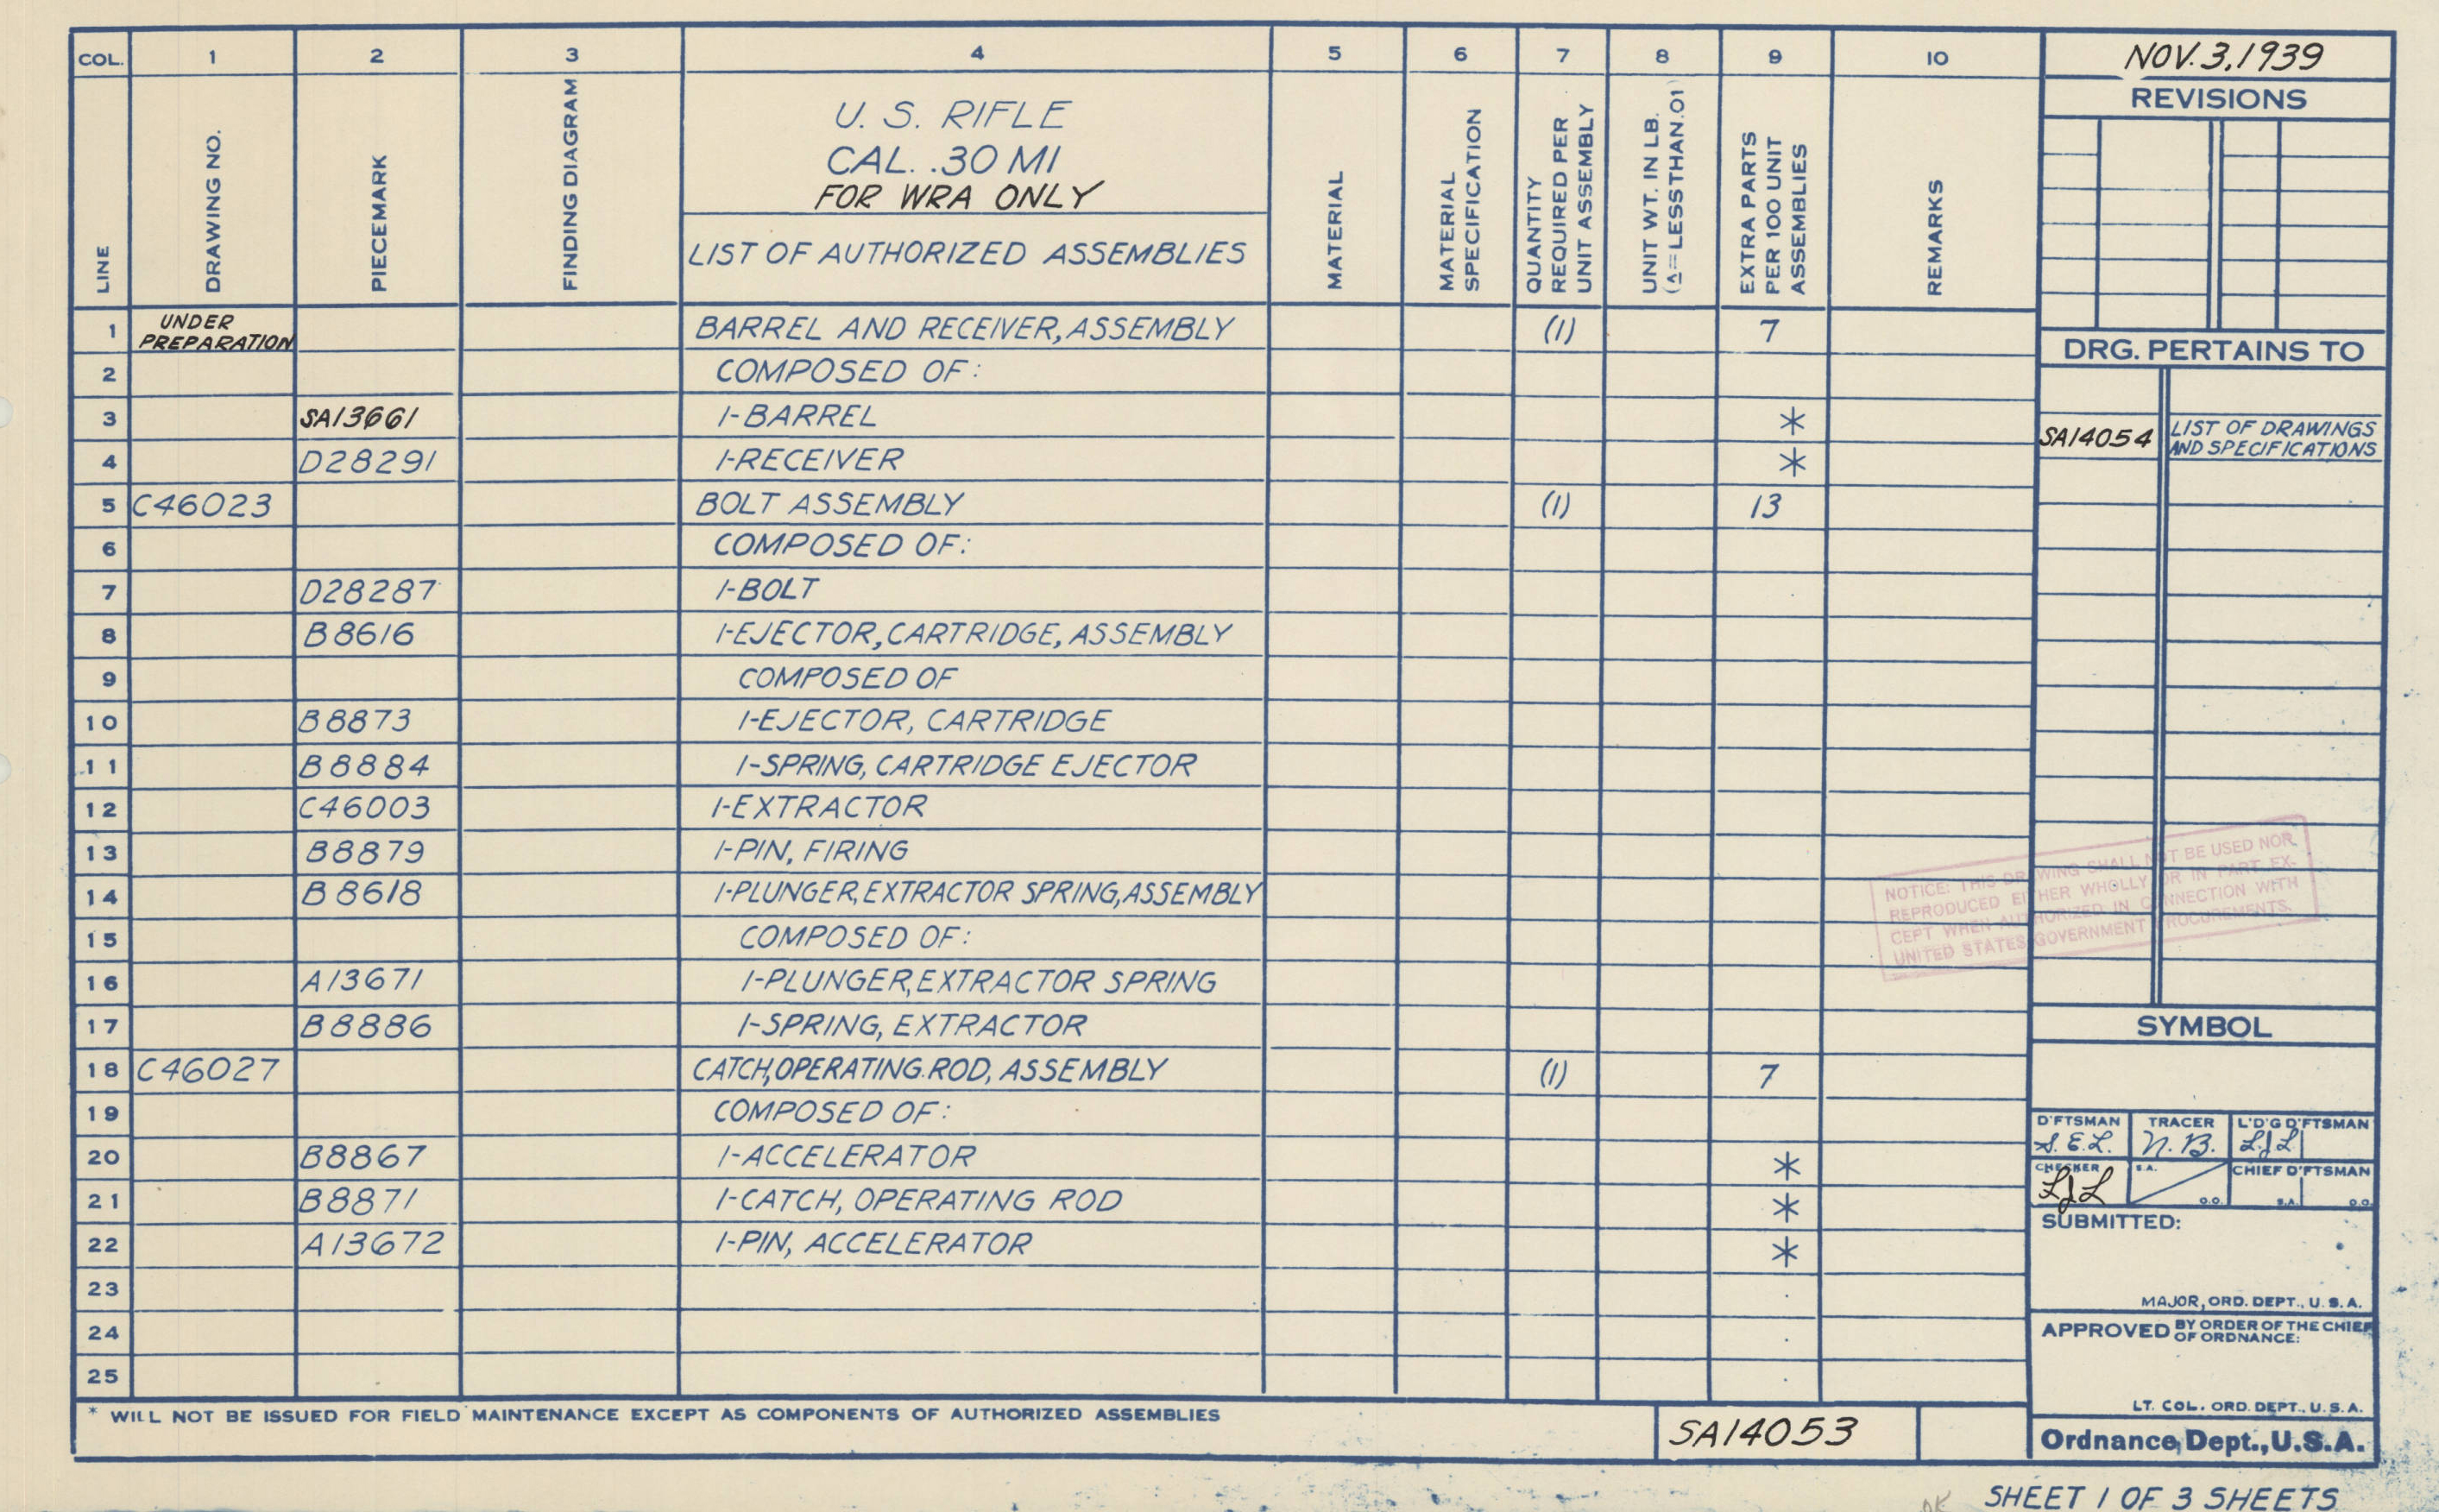 COL. 1 2 3 4 5 6 7 8 9 10
LINE
DRAWING NO.
PIECEMARK
FINDING DIAGRAM
U. S. RIFLE
CAL. .30 M1
FOR WRA ONLY
LIST OF AUTHORIZED ASSEMBLIES
MATERIAL
MATERIAL
SPECIFICATION
QUANTITY
REQUIRED PER
UNIT ASSEMBLY
UNIT WT. IN LB.
(∆=LESS THAN .01)
EXTRA PARTS
PER 100 UNIT
ASSEMBLIES
REMARKS
1 UNDER PREPARATION BARREL AND RECEIVER, ASSEMBLY (1) 7
2 COMPOSED OF:
3 SA13661 1-BARREL *
4 D28291 1-RECEIVER *
5 C46023 BOLT ASSEMBLY (1) 13
6 COMPOSED OF:
7 D28287 1-BOLT
8 B8616 1-EJECTOR, CARTRIDGE, ASSEMBLY
9 COMPOSED OF
10 B8873 1-EJECTOR, CARTRIDGE
11 B8884 1-SPRING, CARTRIDGE EJECTOR
12 C46003 1-EXTRACTOR
13 B8879 1-PIN, FIRING
14 B8618 1-PLUNGER, EXTRACTOR SPRING, ASSEMBLY
15 COMPOSED OF:
16 A13671 1-PLUNGER, EXTRACTOR SPRING
17 B8886 1-SPRING, EXTRACTOR
18 C46027 CATCH, OPERATING ROD, ASSEMBLY (1) 7
19 COMPOSED OF:
20 B8867 1-ACCELERATOR *
21 B8871 1-CATCH, OPERATING ROD *
22 A13672 1-PIN, ACCELERATOR *
23
24
25
* WILL NOT BE ISSUED FOR FIELD MAINTENANCE EXCEPT AS COMPONENTS OF AUTHORIZED ASSEMBLIES
SA14053
NOV. 3, 1939
REVISIONS
DRG. PERTAINS TO
SA14054 LIST OF DRAWINGS
AND SPECIFICATIONS
NOTICE: THIS DRAWING SHALL NOT BE USED NOR
REPRODUCED EITHER WHOLLY OR IN PART EX-
CEPT WHEN AUTHORIZED IN CONNECTION WITH
UNITED STATES GOVERNMENT PROCUREMENTS.
SYMBOL
D'FTSMAN TRACER L'D'G D'FTSMAN
S.E.L. N.B. LJL
CHECKER S.A. O.O. CHIEF D'FTSMAN
LJL S.A. O.O.
SUBMITTED:
MAJOR, ORD. DEPT., U.S.A.
APPROVED BY ORDER OF THE CHIEF
OF ORDNANCE:
LT. COL. ORD. DEPT., U.S.A.
Ordnance Dept., U.S.A.
SHEET 1 OF 3 SHEETS